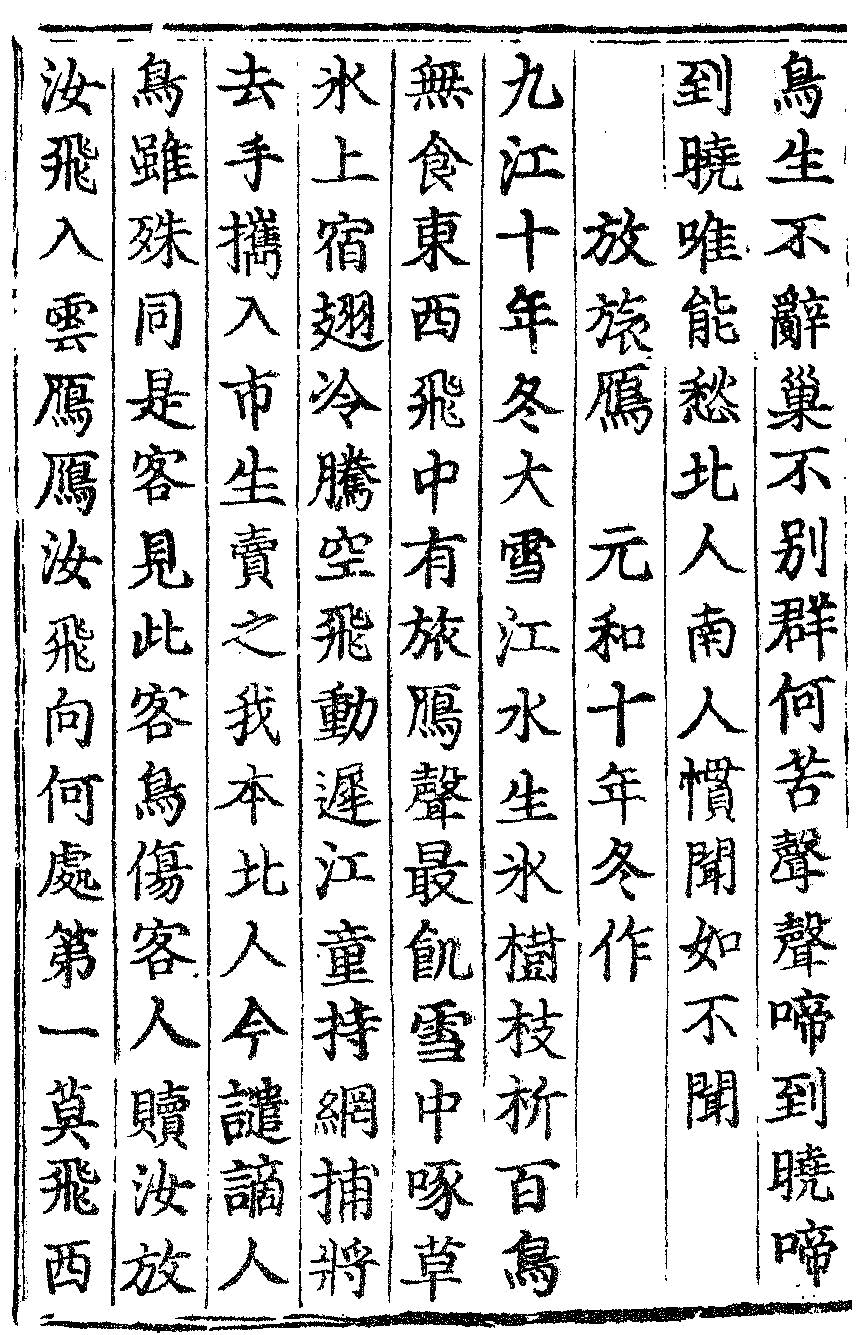 鳥生不辭巢不别群何苦聲聲啼到曉啼
到曉唯能愁北人南人慣聞如不聞
放旅鴈　元和十年冬作
九江十年冬大雪江水生氷樹枝折百鳥
無食東西飛中有旅鴈聲最飢雪中啄草
氷上宿翅冷騰空飛動遲江童持網捕將
去手攜入市生賣之我本北人今譴謫人
鳥雖殊同是客見此客鳥傷客人贖汝放
汝飛入雲鴈鴈汝飛向何處第一莫飛西